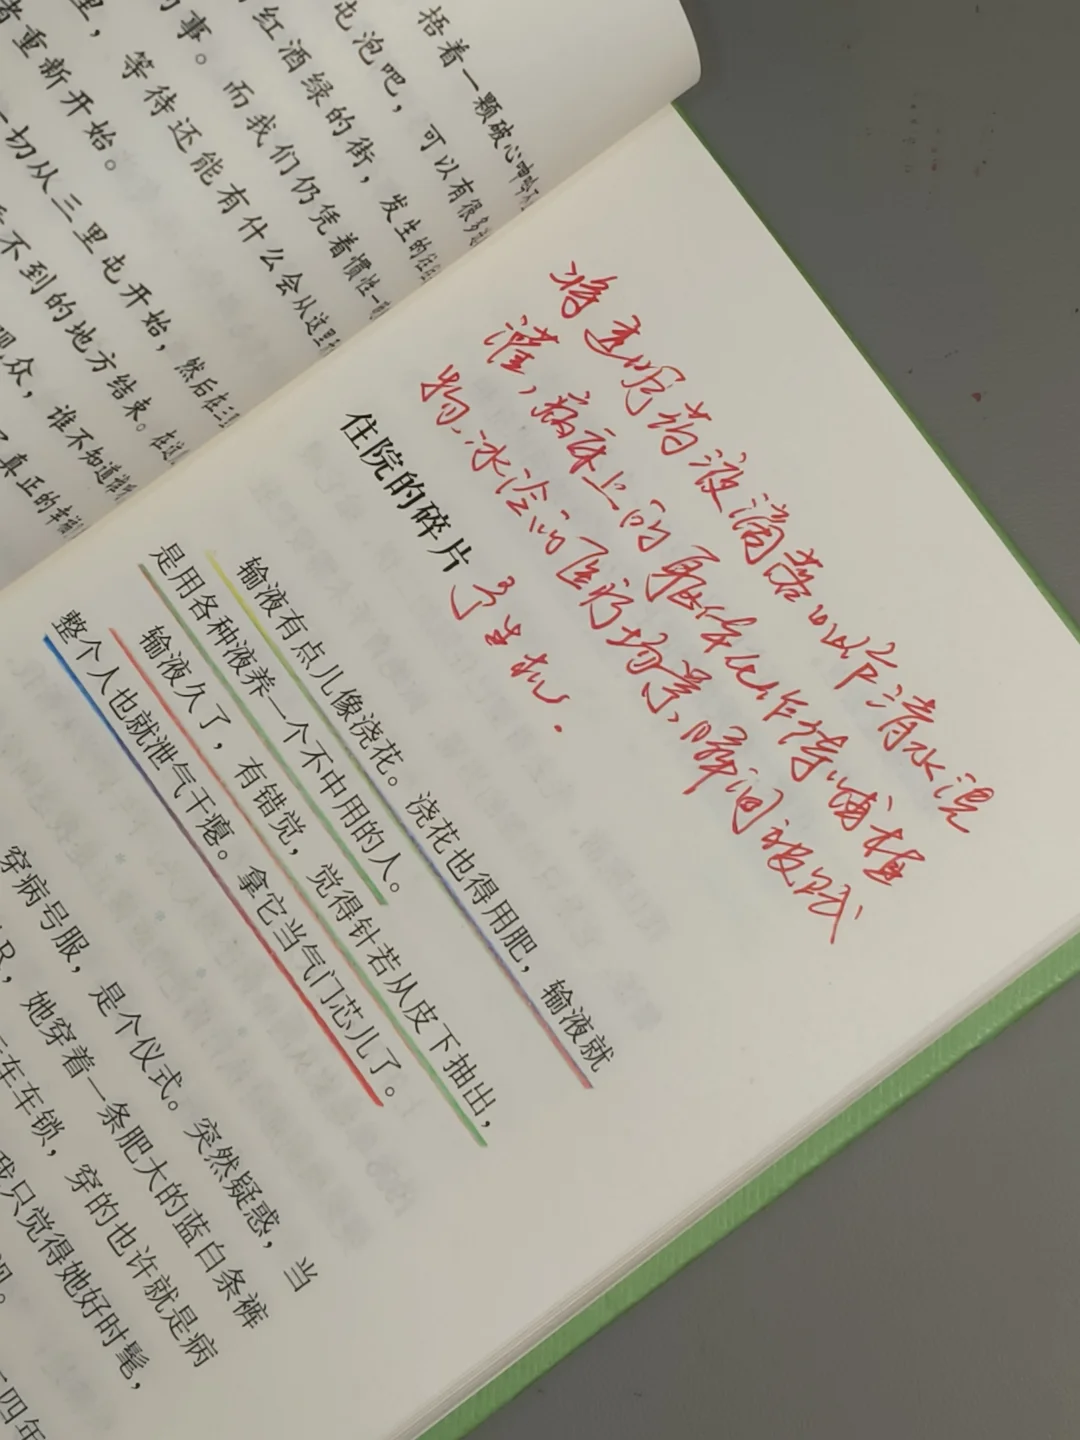 捂着一颗破心
屯泡吧，可以有很多
红酒绿的街，发生的往
的事。而我们仍凭着惯性一
里，等待还能有什么会从这里
者重新开始。
一切从三里屯开始，然后在三
不到的地方结束。在这
观众，谁不知道谁
了真正的幸福
将透明药液滴落叫作清水浸
灌，病床上的躯体化作待哺植
物，冰冷的医疗场景，瞬间被赋
予生机.
住院的碎片
输液有点儿像浇花。浇花也得用肥，输液就
是用各种液养一个不中用的人。
输液久了，有错觉，觉得针若从皮下抽出，
整个人也就泄气干瘪。拿它当气门芯儿了。
穿病号服，是个仪式。突然疑惑，当
R，她穿着一条肥大的蓝白条裤
车车锁，穿的也许就是病
我只觉得她好时髦，
四年